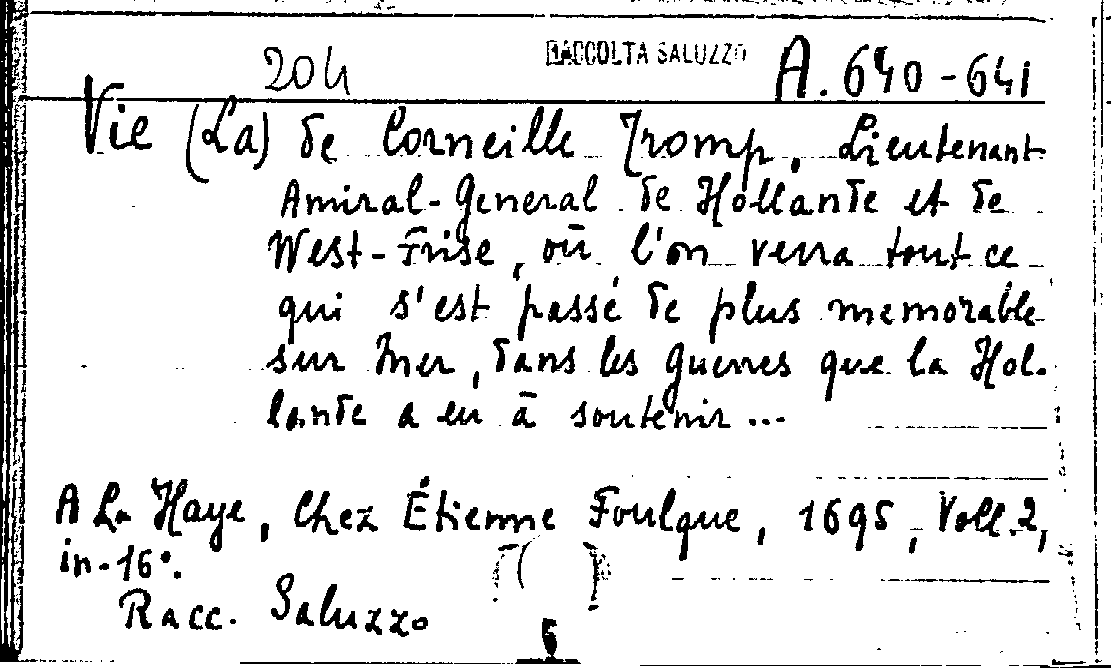 204 RACCOLTA SALUZZO A. 640-641
Vie (La) de Corneille Tromp, Lieutenant
Amiral-General de Hollande et de
West-Frise, où l'on verra tout ce
qui s'est passé de plus memorable
sur Mer, dans les Guerres que la Hol-
lande a eu à soutenir...
A La Haye, Chez Étienne Foulque, 1695, Voll. 2,
in-16°.
Racc. Saluzzo